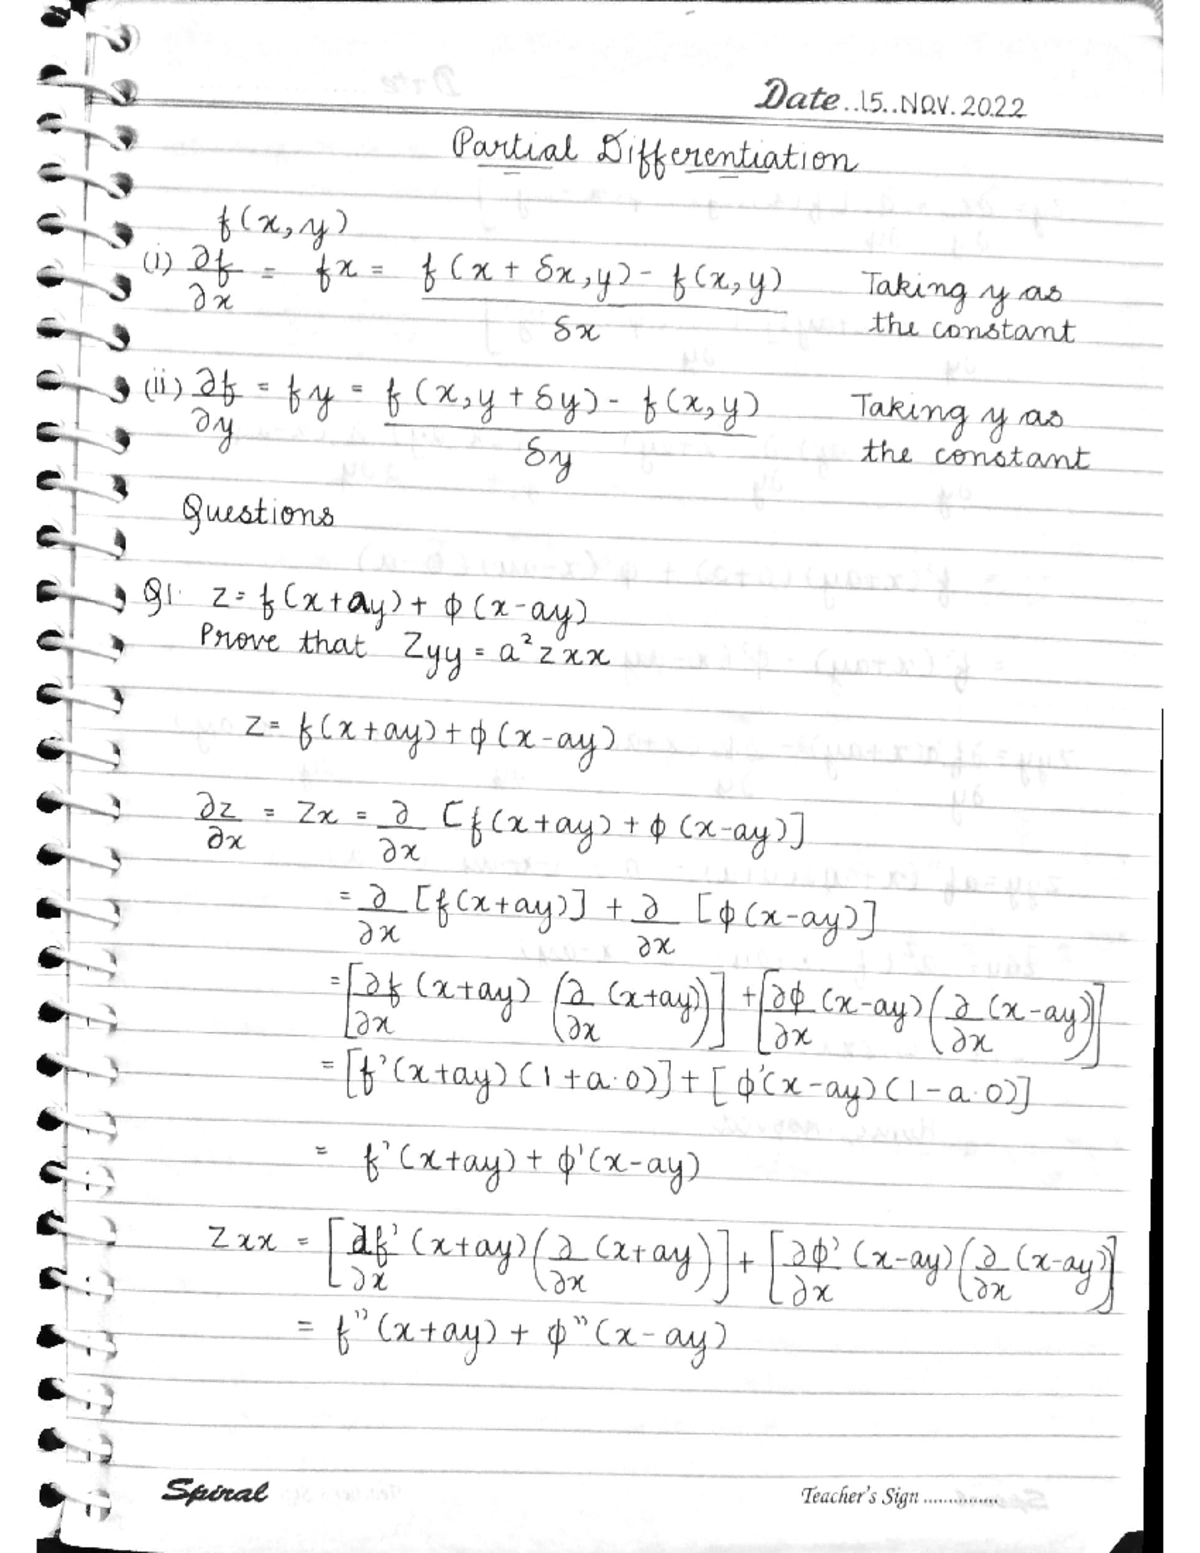 Date..15..NOV.2022
Partial Differentiation
f(x,y)
(i) ∂f/∂x = fx = f(x + δx,y) - f(x,y) / δx Taking y as the constant
(ii) ∂f/∂y = fy = f(x,y + δy) - f(x,y) / δy Taking y as the constant
Questions
Q1. z = f(x+ay) + φ(x-ay)
Prove that Zyy = a²zxx
z = f(x+ay) + φ(x-ay)
∂z/∂x = Zx = ∂/∂x [f(x+ay) + φ(x-ay)]
= ∂/∂x [f(x+ay)] + ∂/∂x [φ(x-ay)]
= [∂f/∂x (x+ay) (∂/∂x (x+ay))] + [∂φ/∂x (x-ay) (∂/∂x (x-ay))]
= [f'(x+ay)(1+a·0)] + [φ'(x-ay)(1-a·0)]
= f'(x+ay) + φ'(x-ay)
Zxx = [∂f'/∂x (x+ay) (∂/∂x (x+ay))] + [∂φ'/∂x (x-ay) (∂/∂x (x-ay))]
= f''(x+ay) + φ''(x-ay)
Spiral
Teacher's Sign ...............